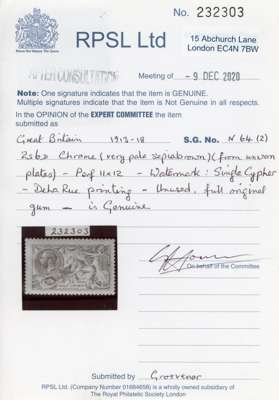 No. 232303
RPSL Ltd
15 Abchurch Lane
London EC4N 7BW
AFTER CONSULTATION
Meeting of - 9 DEC 2020
Note: One signature indicates that the item is GENUINE.
Multiple signatures indicate that the item is Not Genuine in all respects.
In the OPINION of the EXPERT COMMITTEE the item
submitted as
Great Britain 1913-18 S.G. No. N 64 (2)
2s6d Chrome (very pale sepia brown) (from unworn
plates) - Perf 11x12 - Watermark: Single Cypher
- De La Rue printing - Unused, full original
gum - is Genuine
232303
On behalf of the Committee
Submitted by Grosvenor
RPSL Ltd (Company Number 01684656) is a wholly owned subsidiary of
The Royal Philatelic Society London